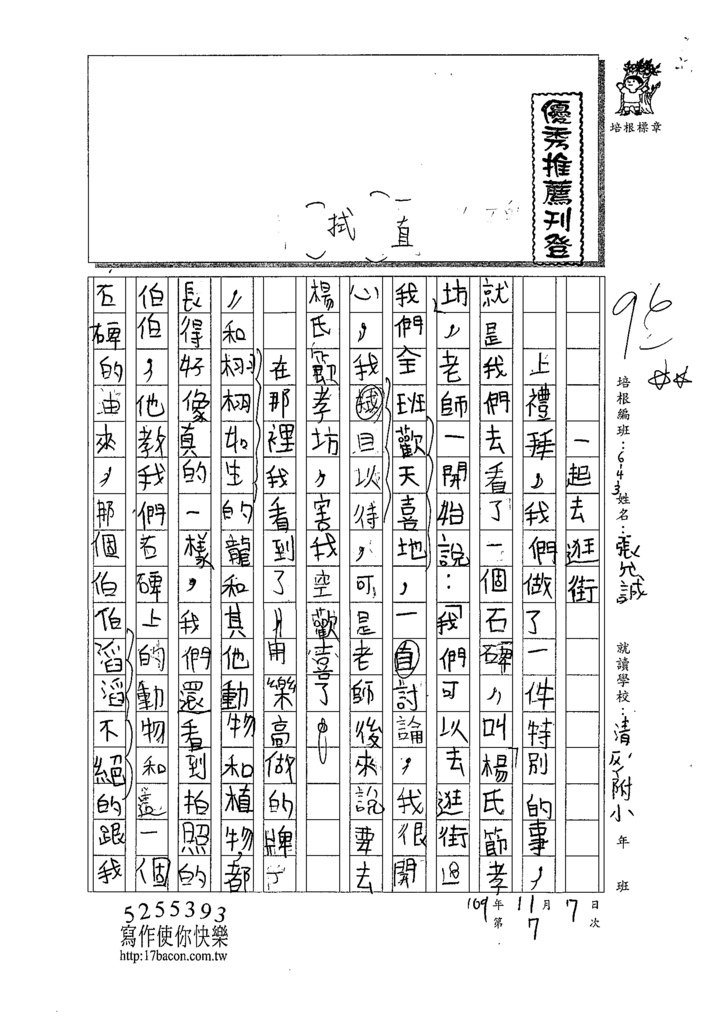 培根標章
優秀推薦刊登
直
拭
96
培根編班：643 姓名：張允誠 就讀學校：清 附小 年 班
109年11月7日 第7次
一起去逛街
上禮拜，我們做了一件特別的事，
就是我們去看了一個石碑，叫楊氏節孝
坊，老師一開始說：「我們可以去逛街」
我們全班歡天喜地，一直討論，我很開
心，我拭目以待，可是老師後來說要去
楊氏節孝坊，害我空歡喜了。
在那裡我看到了用樂高做的牌子
，和栩栩如生的龍和其他動物和植物，都
長得好像真的一樣，我們還看到拍照的
伯伯，他教我們石碑上的動物和這一個
石碑的由來，那個伯伯滔滔不絕的跟我
5255393
寫作使你快樂
http:17bacon.com.tw